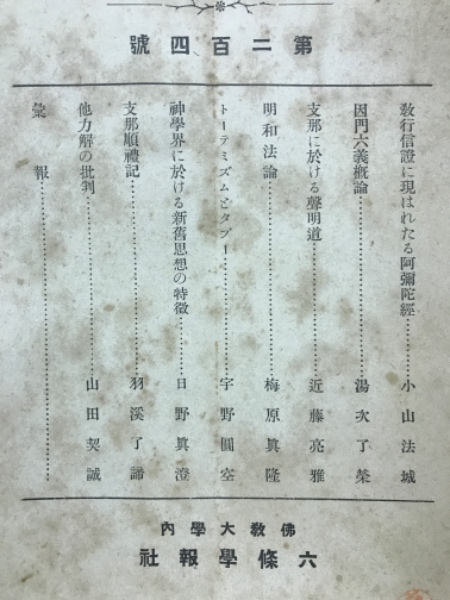 第二百四號
教行信證に現はれたる阿彌陀經……………小山法城
因門六義概論……………湯次了榮
支那に於ける聲明道……………近藤亮雅
明和法論……………梅原眞隆
トーテミズムとタブー……………宇野圓空
神學界に於ける新舊思想の特徵……………日野眞澄
支那順禮記……………羽溪了諦
他力解の批判……………山田契誠
彙報……………
佛教大學內
六條學報社